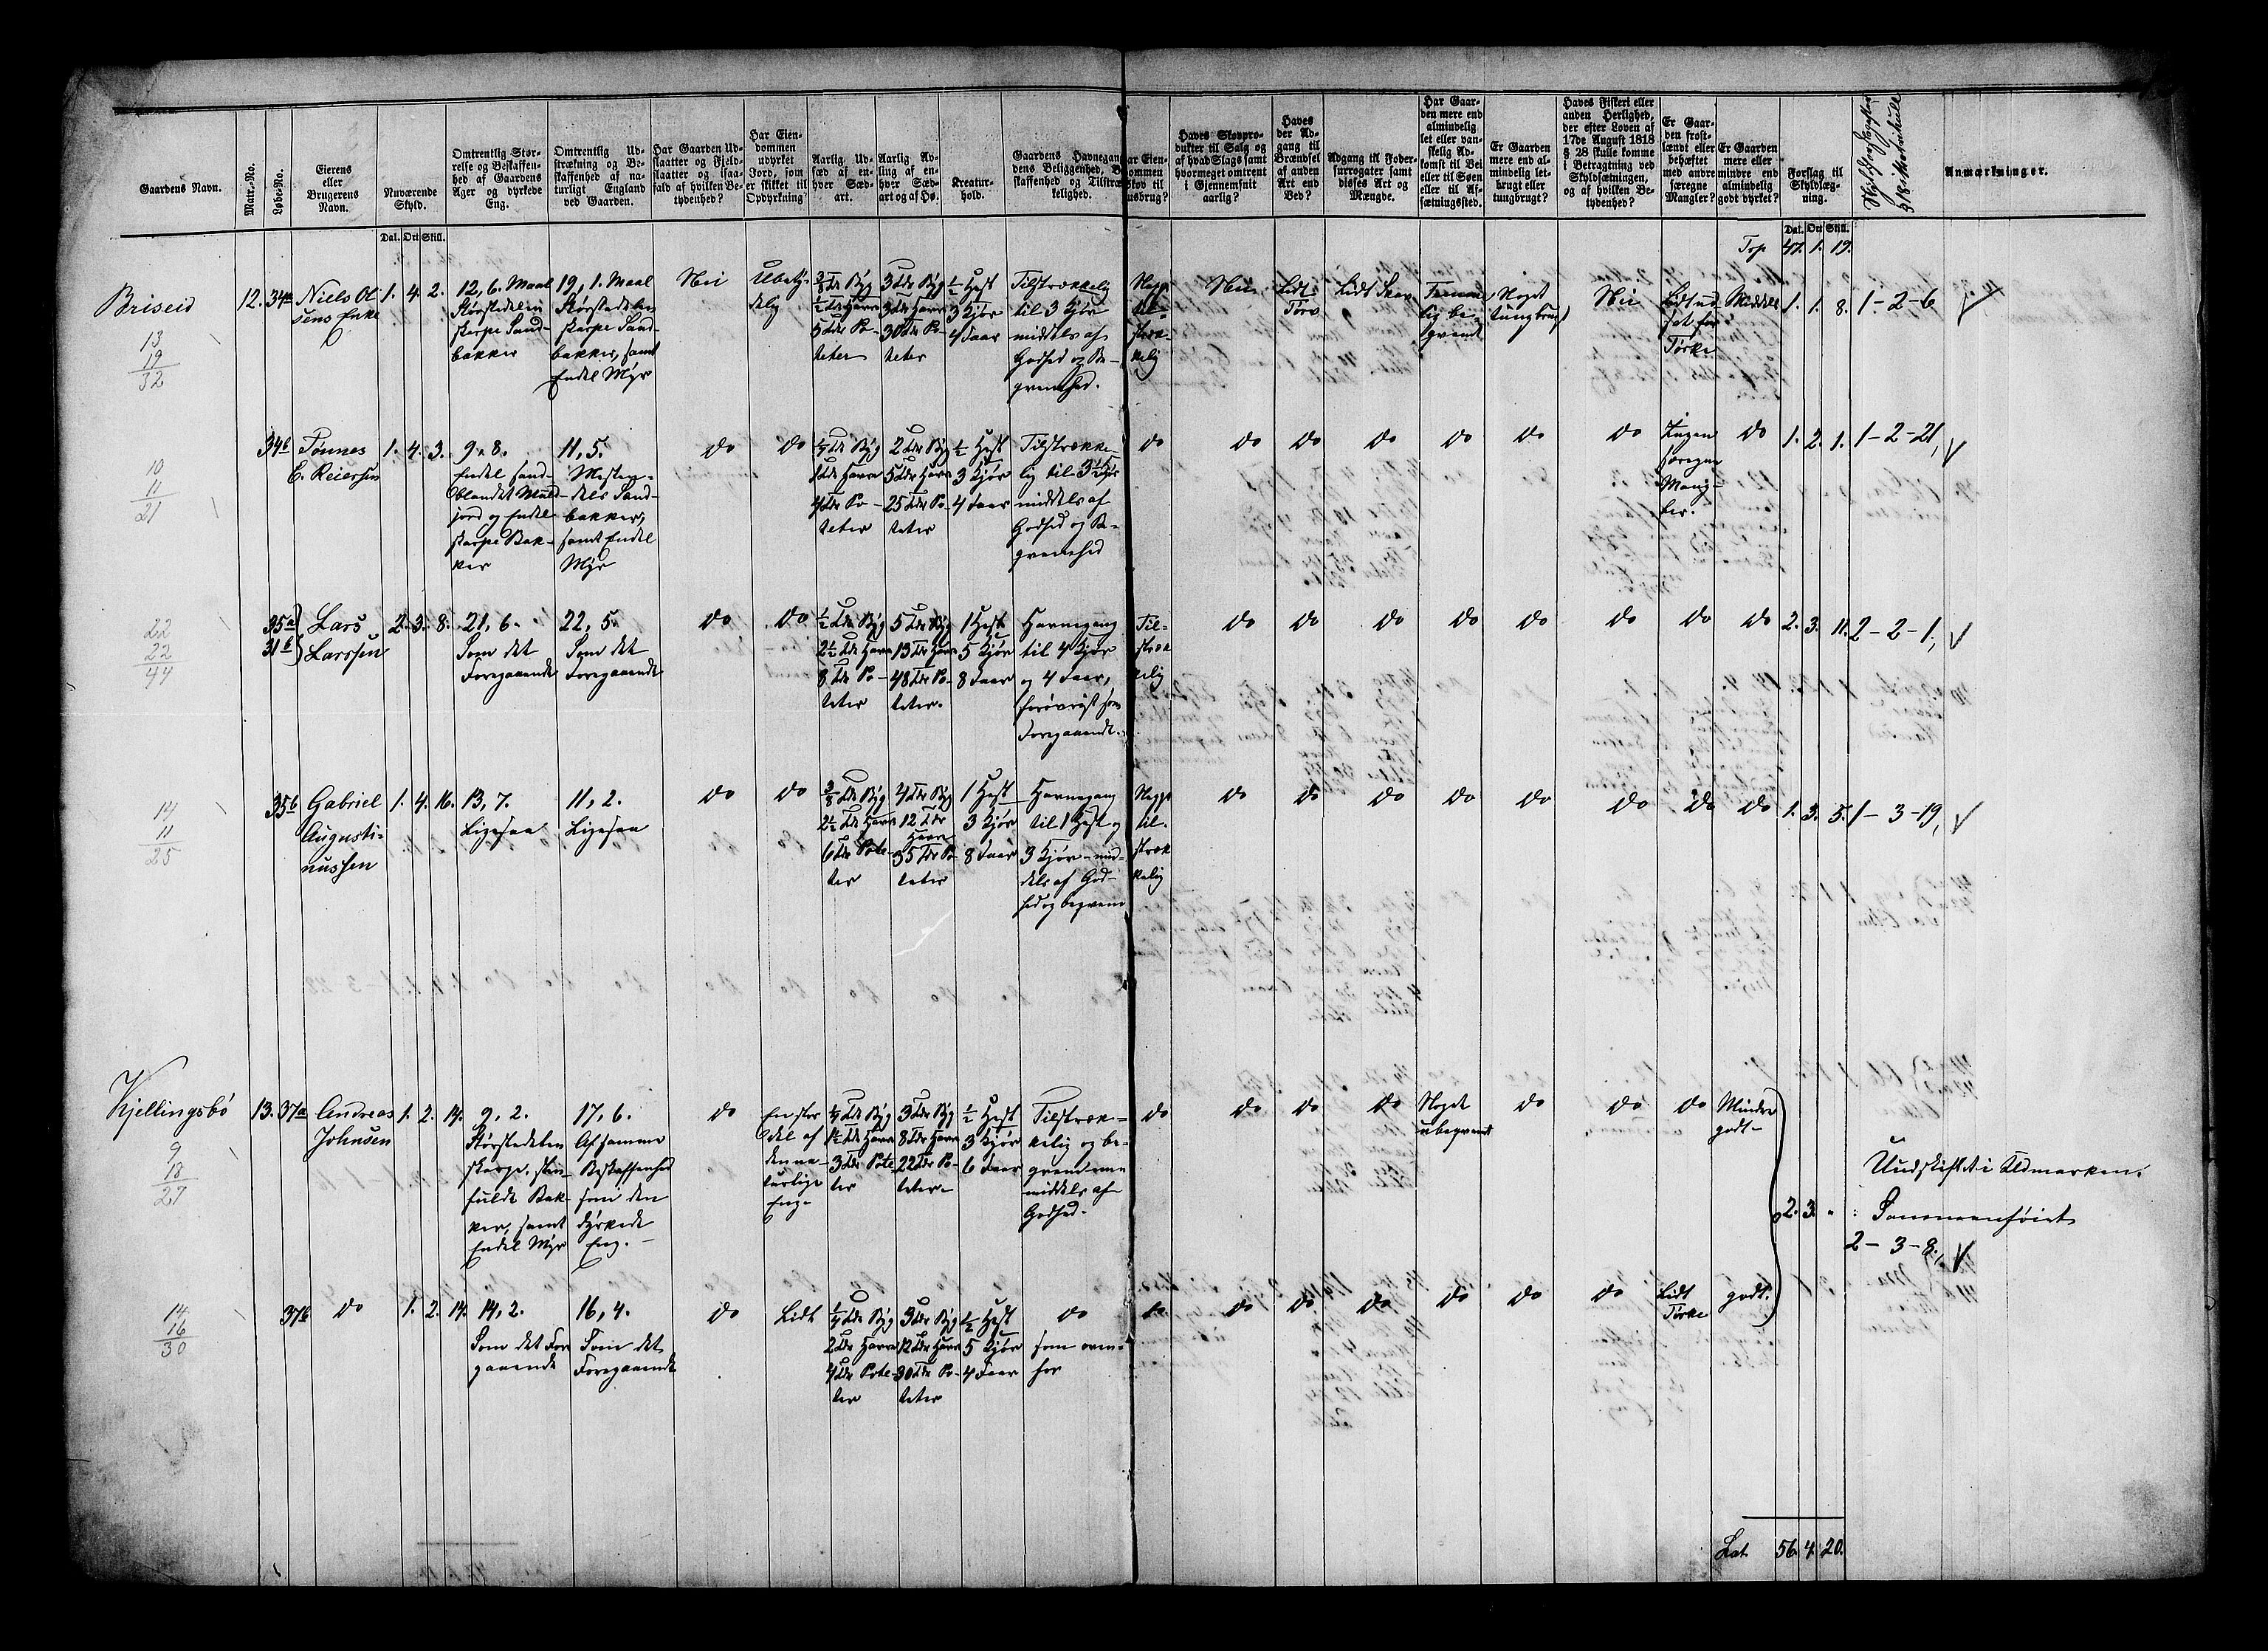 Gaardens Navn.
Matr.-No.
Løbe-No.
Eierens
eller
Brugerens
Navn.
Nuværende
Skyld.
Omtrentlig Stør-
relse og Beskaffen-
hed af Gaardens
Ager og dyrkede
Eng.
Omtrentlig Ud-
strækning og Be-
skaffenhed af na-
turligt England
ved Gaarden.
Har Gaarden Ud-
slaatter og Fjeld-
slaatter og isaa-
fald af hvilken Be-
tydenhed?
Har Eien-
dommen
udyrket
Jord, som
er skikket til
Opdyrkning
Aarlig Ud-
sæd af en-
hver Sæd-
art.
Aarlig Av-
ling af en-
hver Sæd-
art og af Hø.
Kreatur-
hold.
Gaardens Havnegang
dens Beliggenhed, Be-
skaffenhed og Tilstræk-
kelighed.
ar Eien-
ommen
skov til
usbrug?
Haves Skovpro-
dukter til Salg og
af hvad Slags samt
hvormeget omtrent
i Gjennemsnit
aarlig?
Haves
der Ad-
gang til
Brændsel
af anden
Art end
Ved?
Adgang til Foder-
surrogater samt
disses Art og
Mængde.
Har Gaar-
den mere end
almindelig
let eller van-
skelig Ad-
komst til Vei
eller til Søen
eller til Af-
sætningssted.
Er Gaarden
mere end al-
mindelig let-
brugt eller
tungbrugt?
Haves Fiskeri eller
anden Herlighed,
der efter Loven af
17de August 1818
§ 28 skulle komme
i Betragtning ved
Skyldsætningen,
og af hvilken Be-
tydenhed?
Er Gaar-
den frost-
lændt eller
behæftet
med andre
særegne
Mangler?
Er Gaarden
mere eller
mindre end
almindelig
godt dyrket?
Forslag til
Skyldlæg-
ning.
Anmærkninger.
Dal. Ort Skill.
Dal. Ort Skill.
Trp 47. 1. 19.
Briseid
13
19
32
12. 34a
Niels Ol
sens Enke
1. 4. 2.
12, 6. Maal
Størstedelen
skarpe Sand-
bakker
19, 1. Maal
Størstedelen
skarpe Sand-
bakker, samt
Endel Myr
Nei
Ubety-
delig
3/8 Tde Byg
1/2 Tde Havre
5 Tdr Po-
teter
3 Tdr Byg
3 Tdr Havre
30 Tdr Po-
teter
1/2 Hest
3 Kjør
4 Faar
Tilstrækkelig
til 3 Kjør
middels af
Godhed og Be-
qvemhed.
Neppe
til-
stræk-
kelig
Nei
Lidt
Torv
Lidt Skav
Temme
lig be-
qvemt
Noget
tungbrugt
Nei
Lidt ud
sat for
Tørke
Middels
1. 1. 8.
1-2-6
10
11
21
34b
Tønnes
E. Reiersen
1. 4. 3.
9, 8.
Endel sand-
blandet Muld
jord og Endel
skarpe Bak-
ker
11, 5.
Mesten-
dels Sand-
bakker,
samt Endel
Myr
do
do
1/4 Tde Byg
1 Tde Havre
4 Tdr Po-
teter
2 Tdr Byg
5 Tdr Havre
25 Tdr Po-
teter
1/2 Hest
3 Kjør
4 Faar
Tilstrække-
lig til 3 1/2 Kjør
middels af
Godhed og Be-
qvemhed
do do do do do do do
Ingen
særegne
Mang-
ler.
do
1. 2. 1.
1-2-21,
22
22
44
35a
31b
Lars
Larssen
2. 3. 8.
21, 6.
Som det
Foregaaende
22, 5.
Som det
Foregaaende
do
do
1/2 Tde Byg
2 1/2 Tde Havre
8 Tdr Po-
teter
5 Tdr Byg
13 Tdr Havre
48 Tdr Po-
teter.
1 Hest
5 Kjør
8 Faar
Havnegang
til 4 Kjør
og 4 Faar,
forøvrigt som
Foregaaende.
Til-
stræk
kelig
do do do do do do do do
2. 3. 11.
2-2-1,
14
11
25
35b
Gabriel
Augusti-
nussen
1. 4. 16.
13, 7.
Ligesaa
11, 2.
Ligesaa
do
do
3/8 Tde Byg
2 1/2 Tde Havre
6 Tdr Pote-
ter
4 Tdr Byg
12 Tdr
Havre
35 Tdr Po-
teter
1 Hest
3 Kjør
8 Faar
Havnegang
til 1 Hest og
3 Kjør - mid-
dels af God-
hed og beqvem
Neppe
til-
stræk
kelig
do do do do do do do do
1. 3. 5.
1-3-19,
Kjellingsbö
9
18
27
13. 37a
Andreas
Johnsen
1. 2. 14.
9, 2.
Størstedelen
skarpe, sten-
fulde Bak-
ker, samt
Endel Myr
17, 6.
Af samme
Beskaffenhed
som den
dyrkede
Eng.
do
En stor
del af
den na-
turlige
Eng-
1/4 Tde Byg
1 1/2 Tde Havre
3 Tdr Pote
ter
3 Tdr Byg
8 Tdr Havre
22 Tdr Po-
teter
1/2 Hest
3 Kjør
6 Faar
Tilstræk-
kelig og be-
qvem men
middels af
Godhed.
do do do do
Noget
ubeqvemt
do do do
Mindre
godt-
Uudskiftet i Udmarken.
2. 3. "
Sammenføiet
2-3-8,
14
16
30
37b
do
1. 2. 14.
14, 2.
Som det For
gaaende
16, 4.
Som det
Foregaaende
do
Lidt
1/4 Tde Byg
2 Tdr Havre
4 Tdr Pote-
ter
3 Tdr Byg
12 Tdr Havre
30 Tdr Po-
teter
1/2 Hest
5 Kjør
4 Faar
do
som oven-
for
do do do do do do do
Lidt
Tørke
godt.
Lat 56. 4. 20.